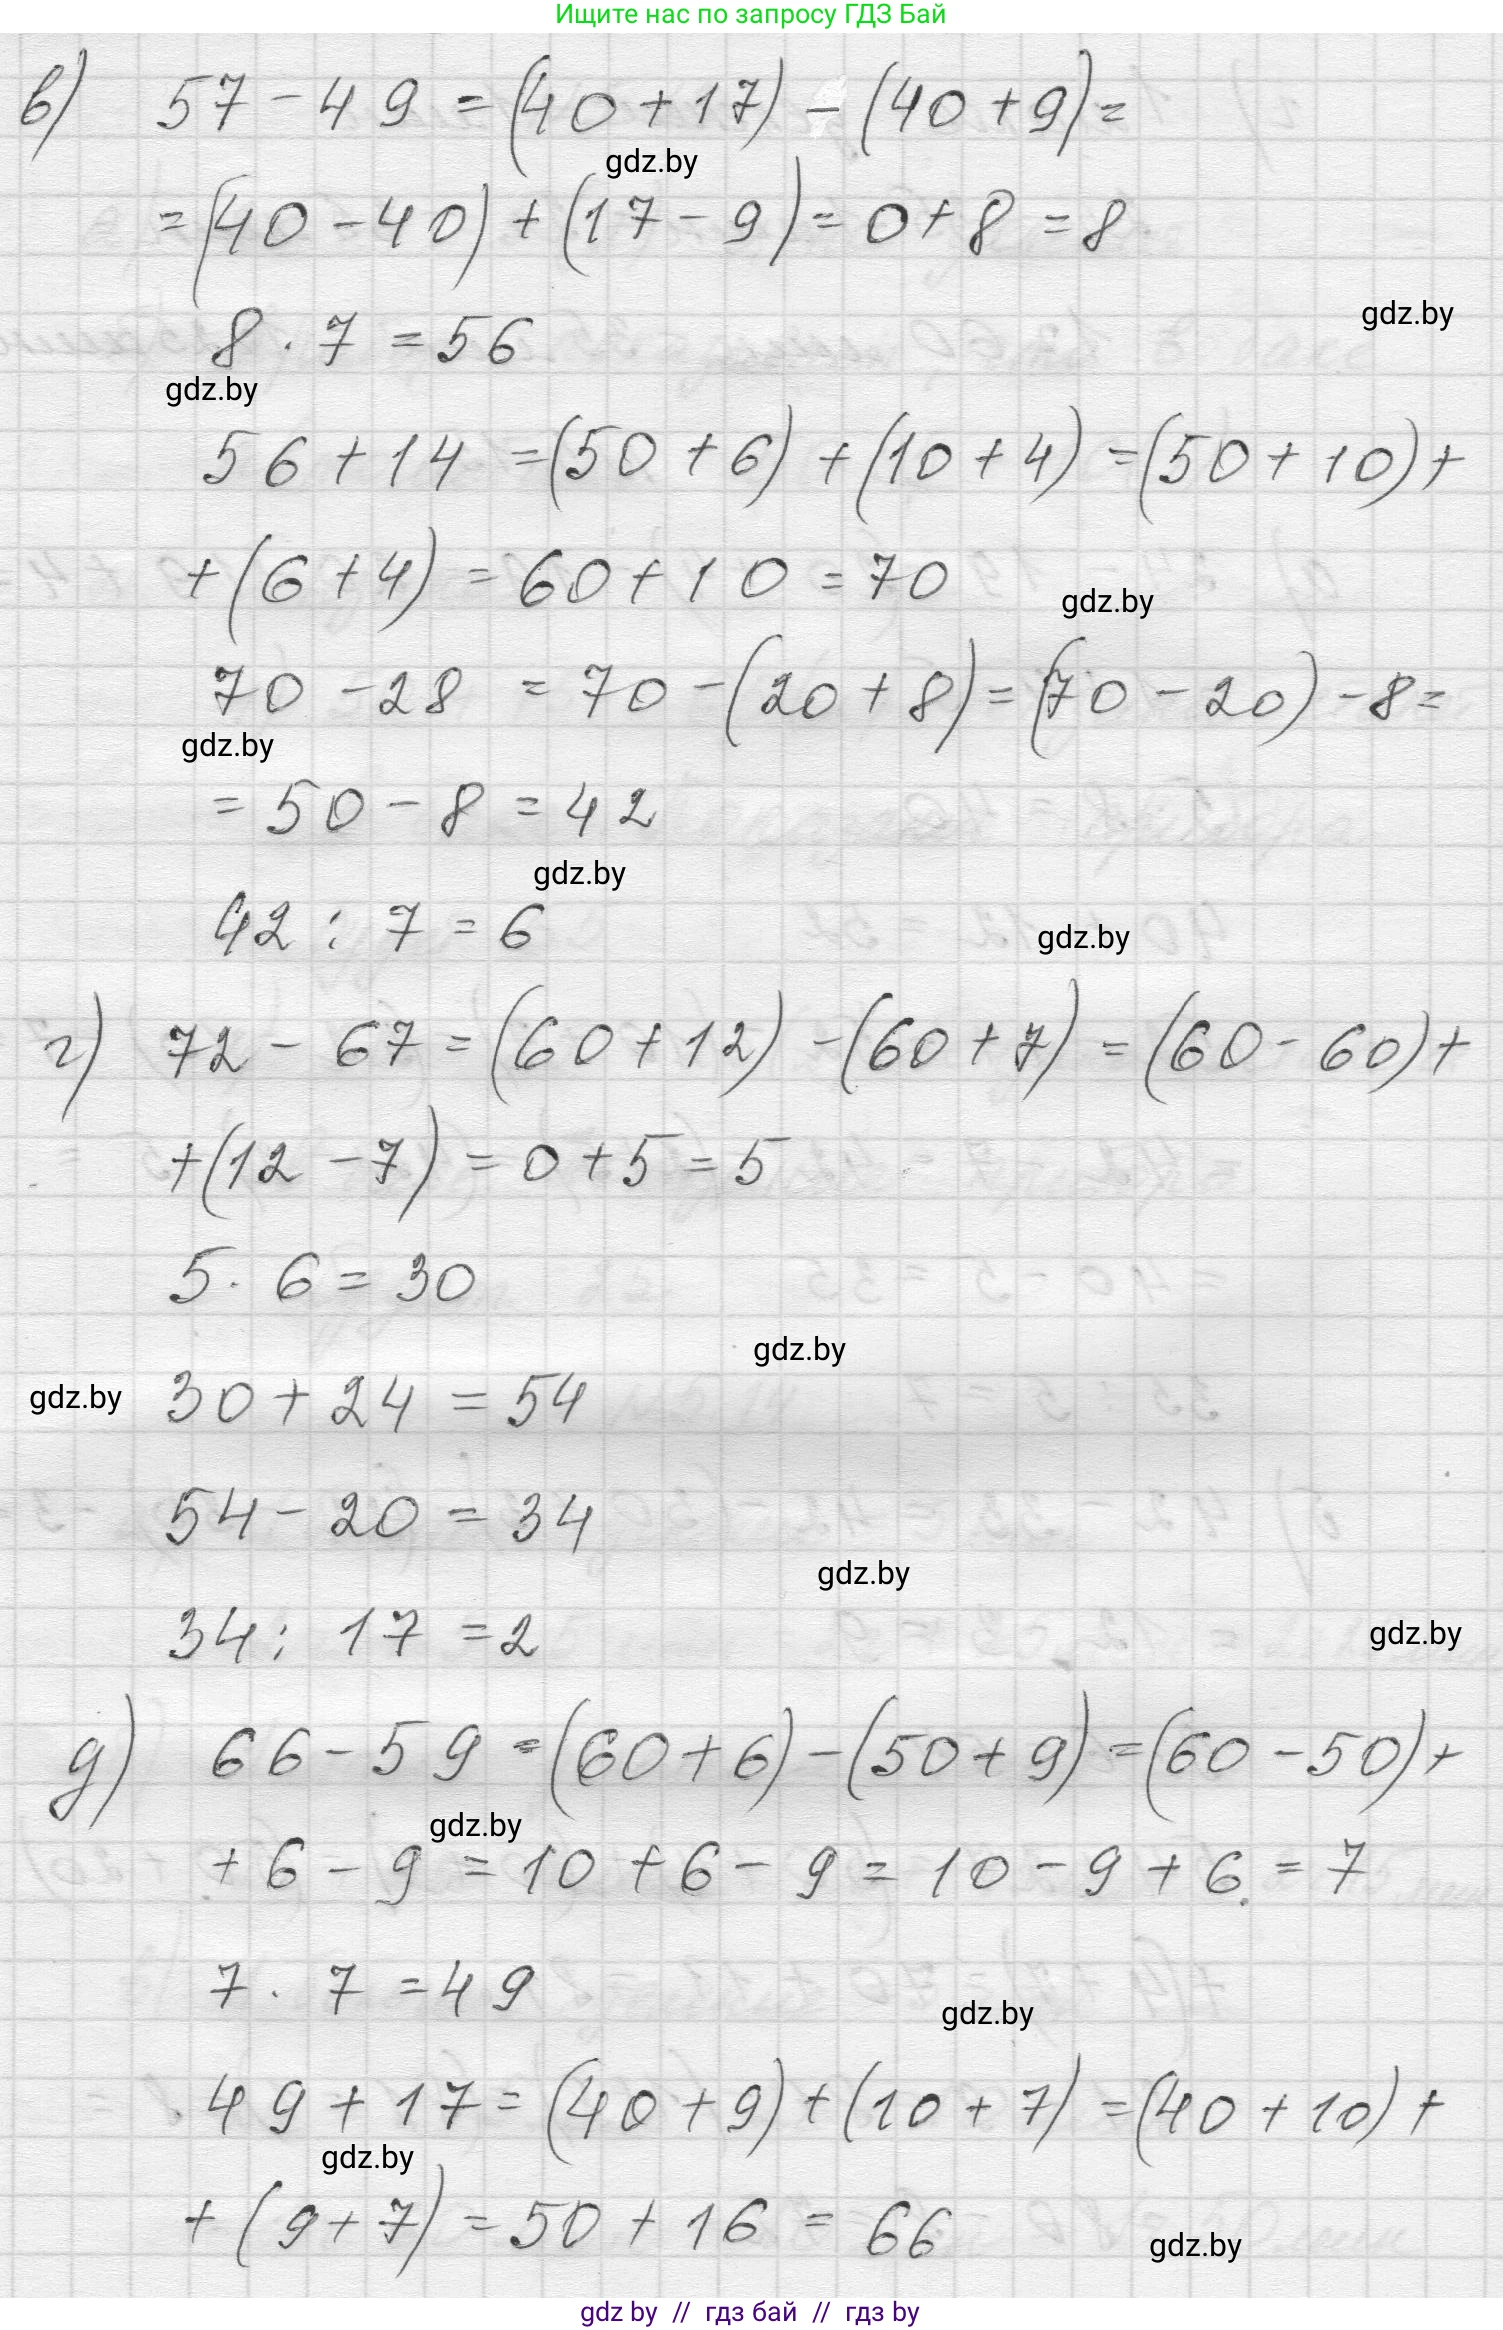 Ищите нас по запросу ГДЗ Бай
в) 57 - 49 = (40 + 17) - (40 + 9) =
gdz.by
= (40 - 40) + (17 - 9) = 0 + 8 = 8
gdz.by
8 · 7 = 56
gdz.by
56 + 14 = (50 + 6) + (10 + 4) = (50 + 10) +
+ (6 + 4) = 60 + 10 = 70
gdz.by
70 - 28 = 70 - (20 + 8) = (70 - 20) - 8 =
gdz.by
= 50 - 8 = 42
gdz.by
42 : 7 = 6
gdz.by
г) 72 - 67 = (60 + 12) - (60 + 7) = (60 - 60) +
+ (12 - 7) = 0 + 5 = 5
5 · 6 = 30
gdz.by
gdz.by
30 + 24 = 54
54 - 20 = 34
gdz.by
34 : 17 = 2
gdz.by
д) 66 - 59 = (60 + 6) - (50 + 9) = (60 - 50) +
gdz.by
+ 6 - 9 = 10 + 6 - 9 = 10 - 9 + 6 = 7
7 · 7 = 49
gdz.by
49 + 17 = (40 + 9) + (10 + 7) = (40 + 10) +
gdz.by
+ (9 + 7) = 50 + 16 = 66
gdz.by
gdz by // гдз бай // гдз by